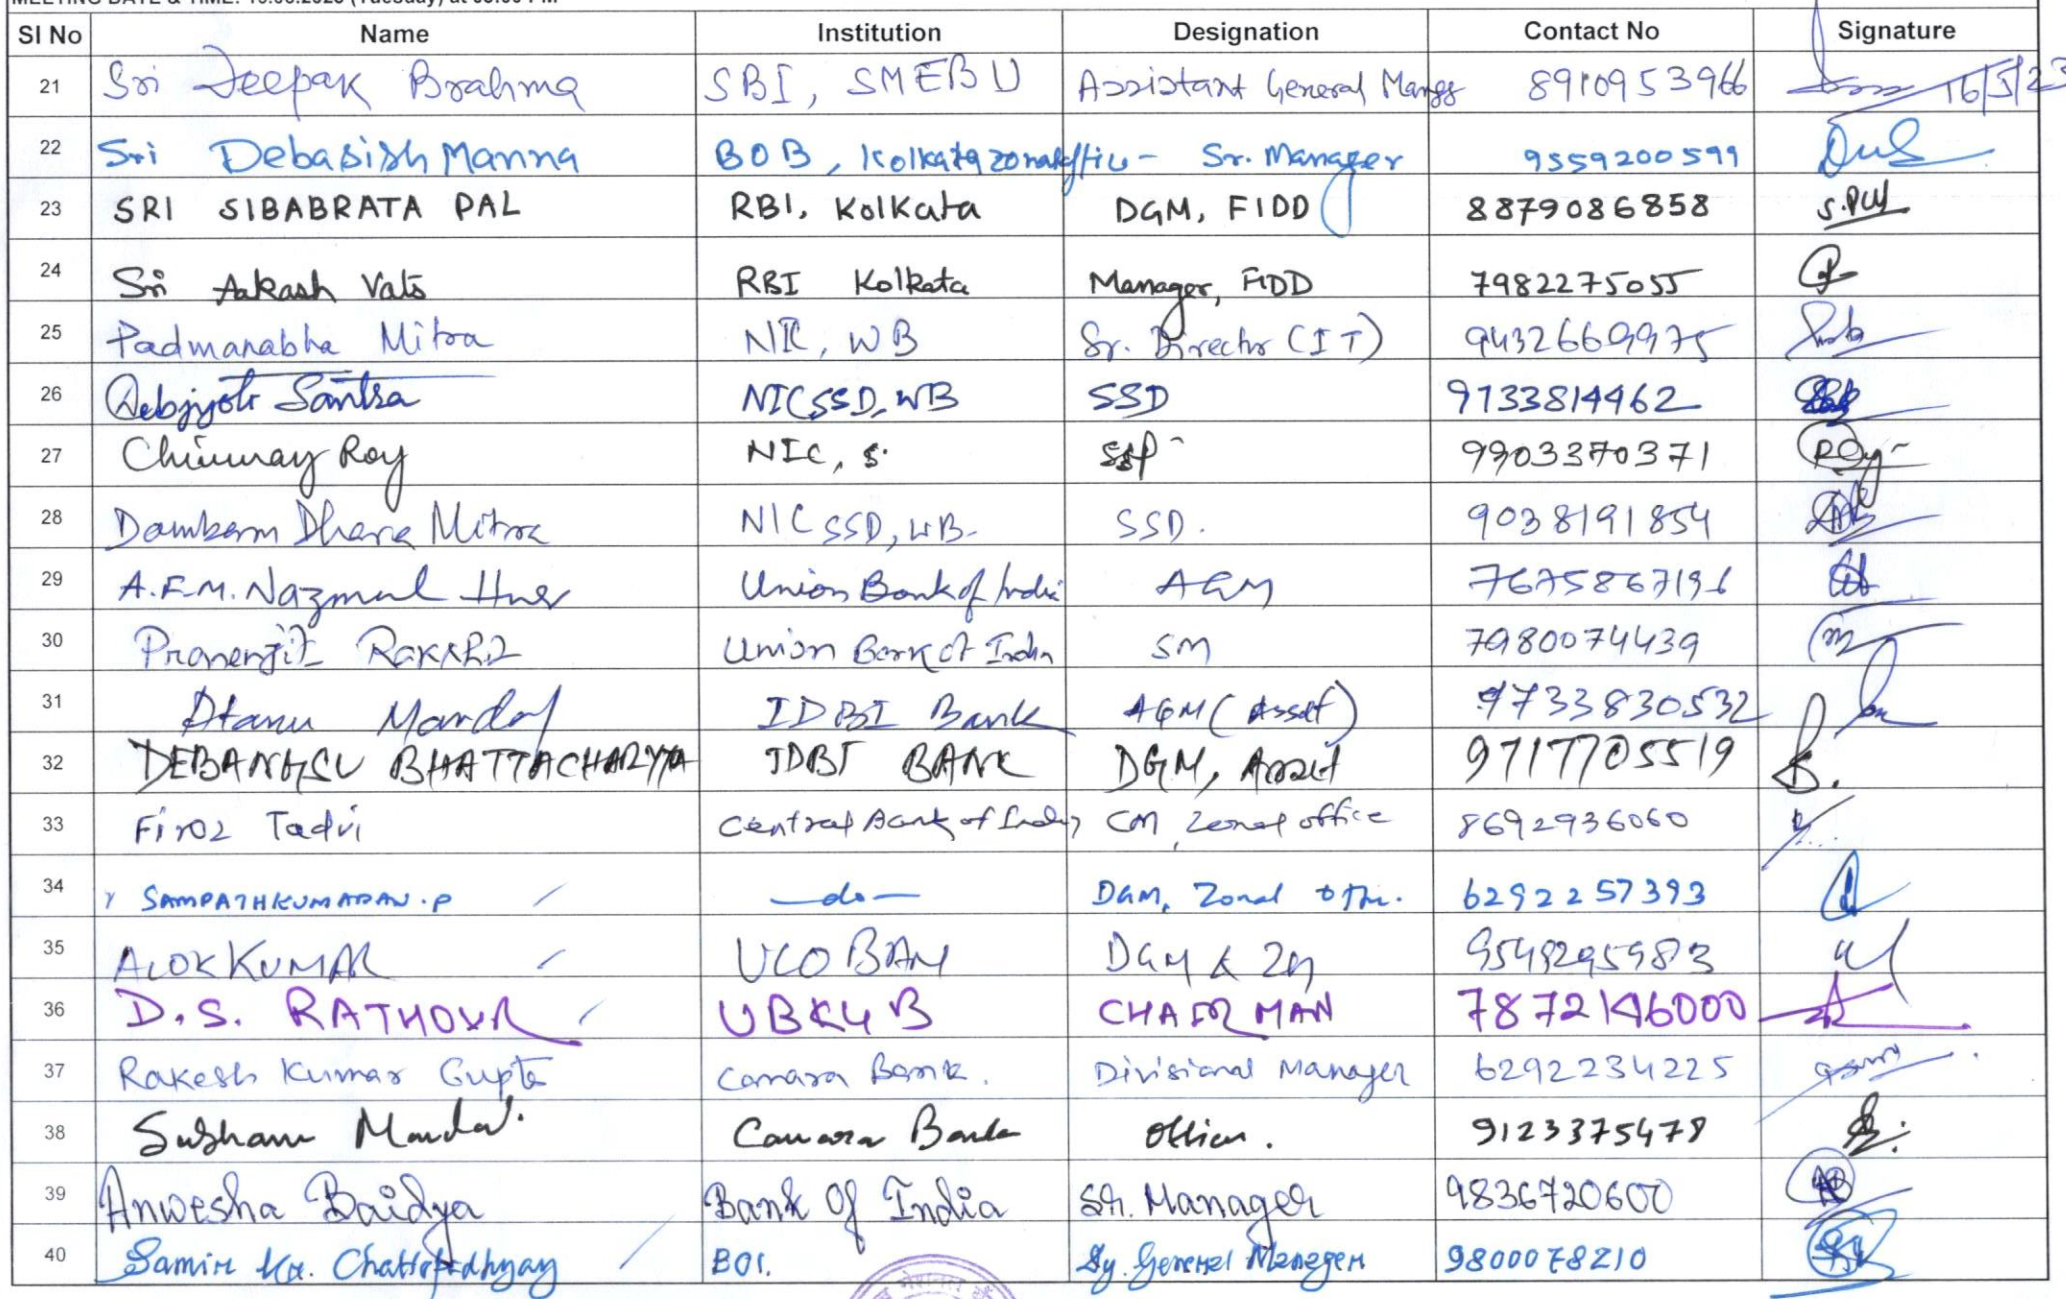 MEETING DATE & TIME: 16.05.2023 (Tuesday) at 03:00 PM
Sl No Name Institution Designation Contact No Signature
21 Sri Deepak Brahma SBI, SMEBU Assistant General 8910953966 16/5/23
22 Sri Debasish Manna BOB, Kolkata zonal Sr. Manager 9559200599
23 SRI SIBABRATA PAL RBI, Kolkata DGM, FIDD 8879086858 S.Pal
24 Sri Aakash Vats RBI Kolkata Manager, FIDD 7982275055
25 Padmanabha Mitra NIC, WB Sr. Director (IT) 9432669975
26 Debjyoti Santra NICSSD, WB SSD 9733814462
27 Chinmay Roy NIC, S. 9903370371 Roy
28 Dhara Mitra NIC SSD, WB. SSD. 9038191854
29 A.F.M. Nazmul Union Bank of India AGM
30 Pranenjit Union Bank of India SM 7980074439
31 Atanu Mandal IDBI Bank AGM (Asset) 9733830532
32 DEBANGSU BHATTACHARYYA IDBI BANK DGM, Asset 9717705519
33 Firoz Tadvi Central Bank of India CM, Zonal office 8692936060
34 SAMPATHKUMARAN.P —do— DGM, Zonal 6292257393
35 ALOK KUMAR UCO BANK DGM & ZM
36 D.S. RATHOUR UBKGB CHAIRMAN 7872146000
37 Rakesh Kumar Gupta Canara Bank. Divisional Manager 6292234225
38 Subham Mandal. Canara Bank Officer. 9123375478
39 Anwesha Baidya Bank Of India Sr. Manager 9836720600
40 Samir Kr. Chattopadhyay BOI. Dy. General Manager 9800078210